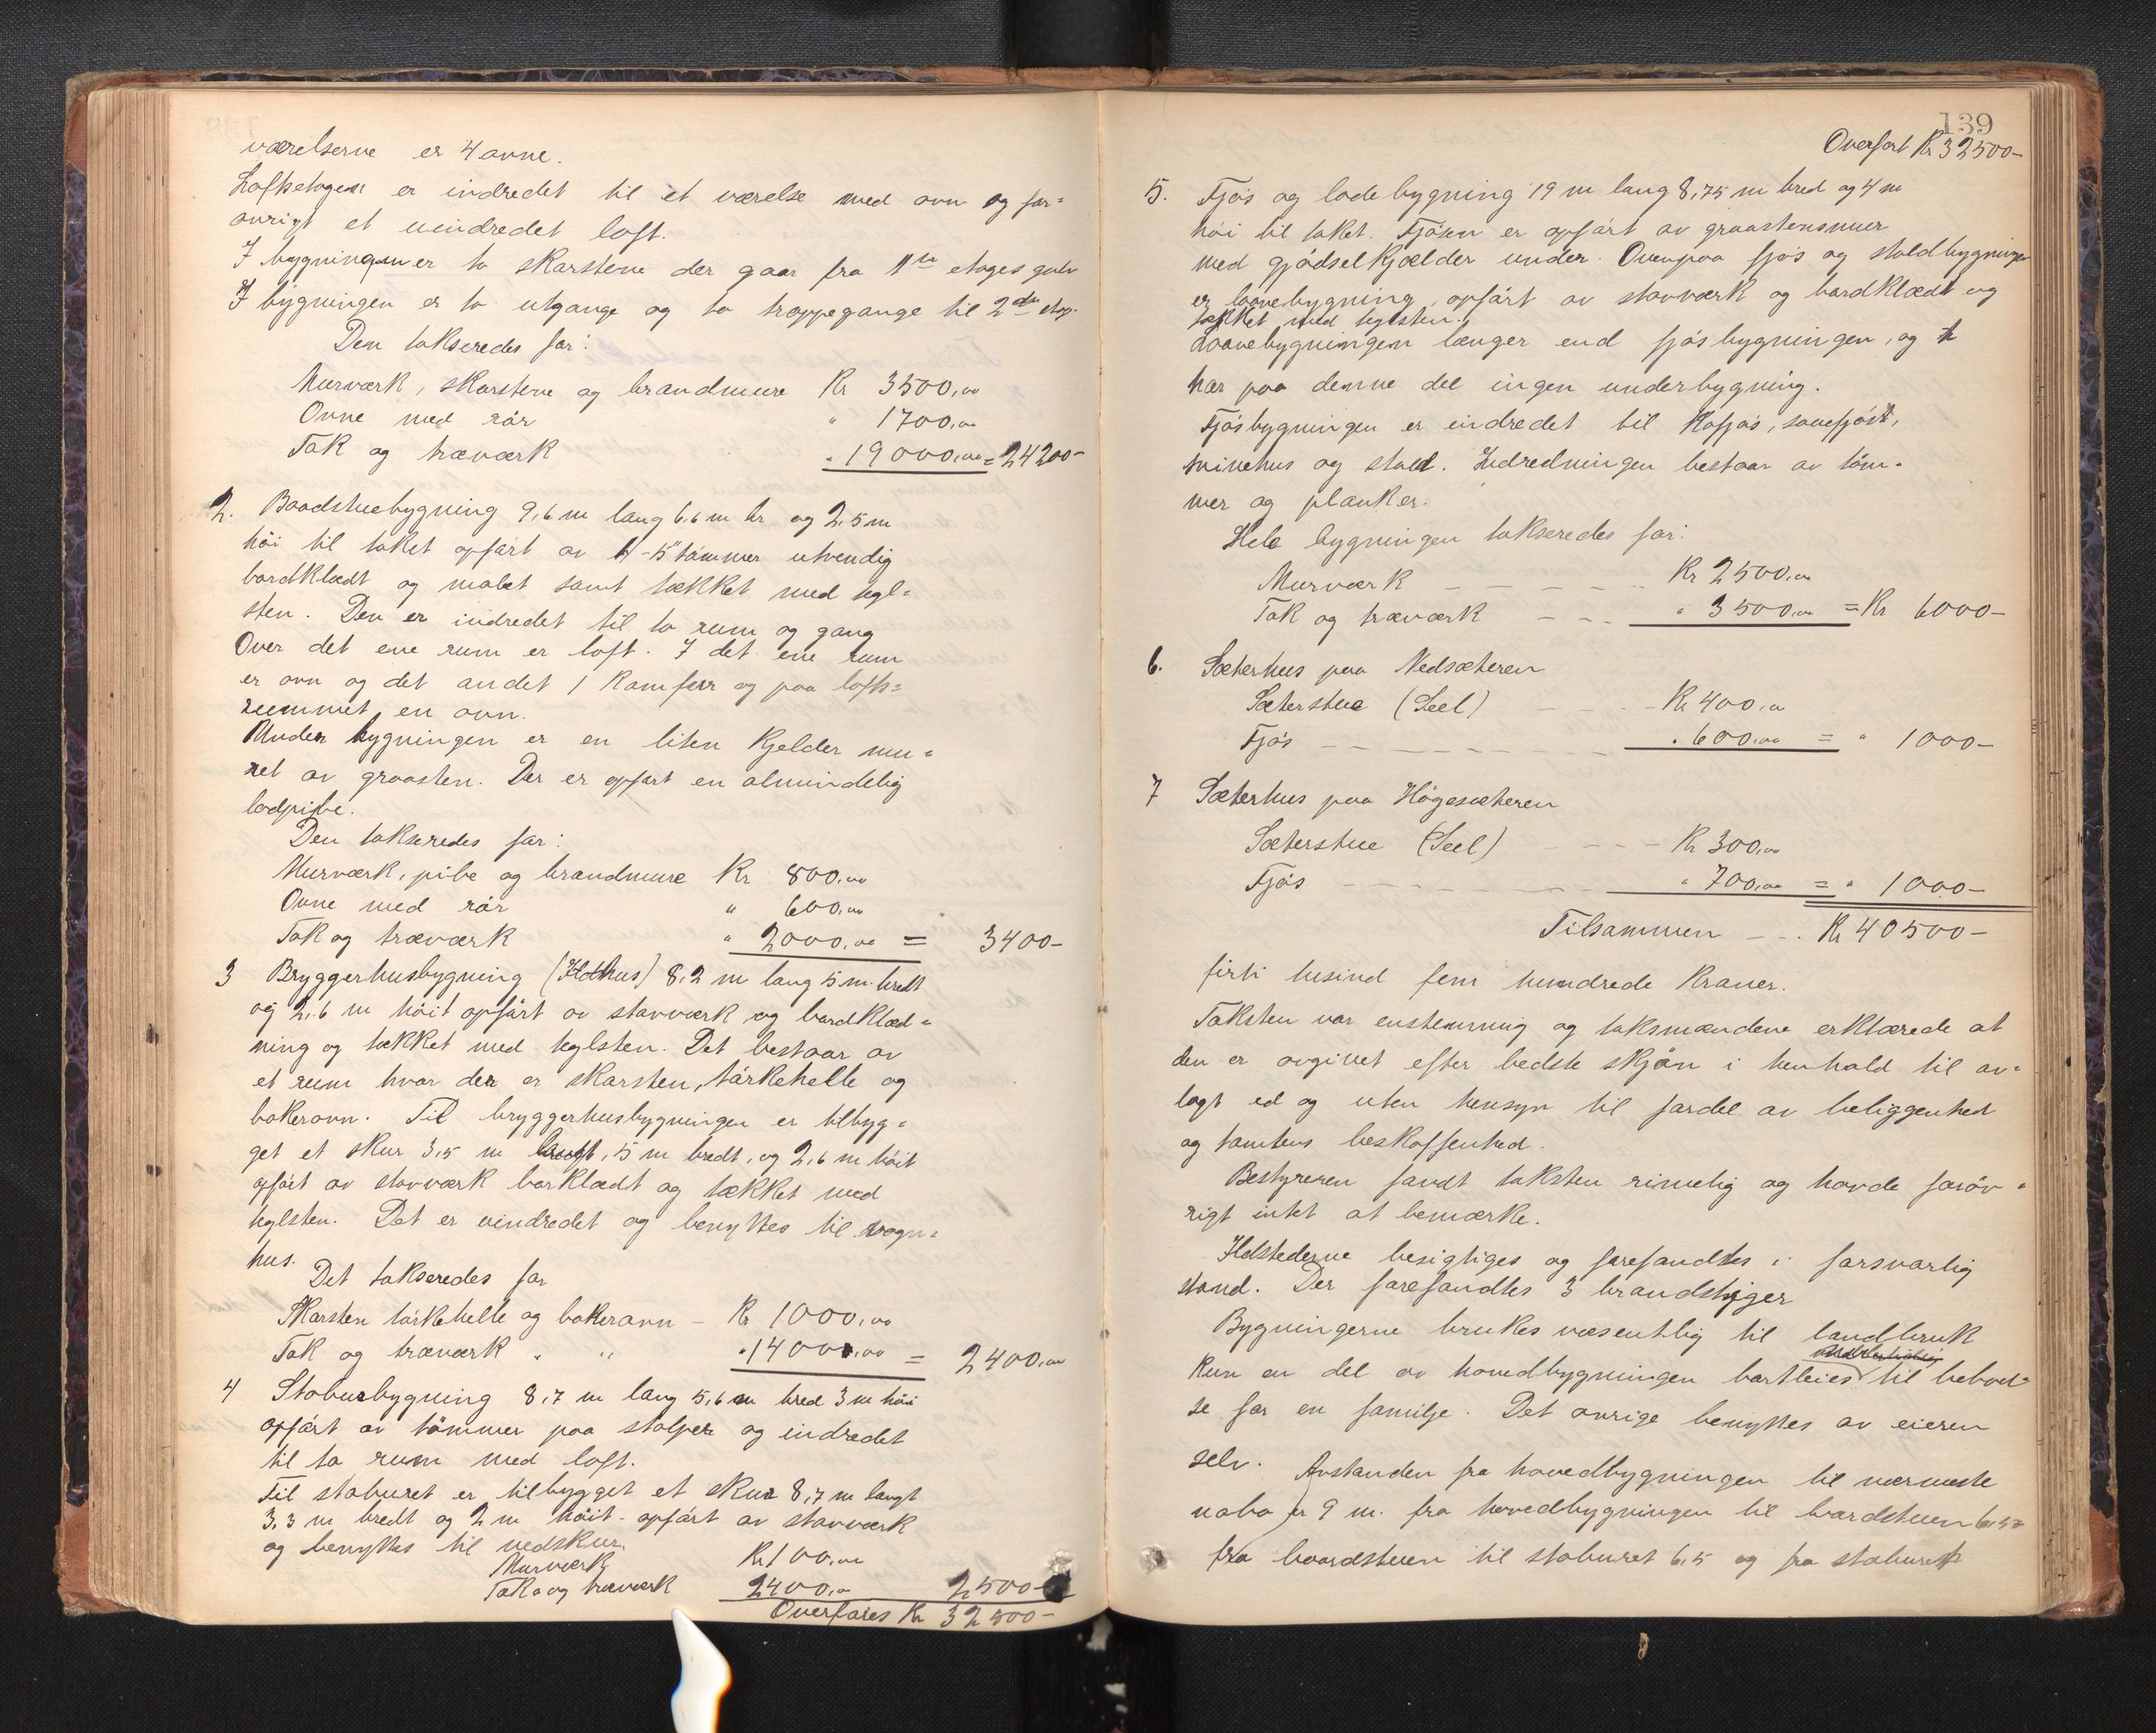 værelserne er 4 ovne.
Loftsetagen er indredet til et værelse med ovn og for=
øvrigt et uindredet loft.
I bygningen er to skorstene der gaar fra 1ste etages gulv
I bygningen er to utgange og to trappegange til 2den etag.
Den takseredes for:
Murværk, skorstene og brandmure Kr 3500,00
Ovne med rör " 1700,00
Tak og træværk " 19000,00 = 24200-
2. Baadstuebygning 9,6 m lang 6,6 m br og 2,5 m
höi til taket opfört av 4-5" tömmer utvendig
bordklædt og malet samt tækket med tegl=
sten. Den er indredet til to rum og gang
Over det ene rum er loft. I det ene rum
er ovn og det andet 1 Komfur og paa lofts=
rummet en ovn.
Under bygningen er en liten Kjelder mu=
ret av graasten. Der er opfört en almindelig
lodpibe.
Den takseredes for:
Murværk, pibe og brandmure Kr 800,00
Ovne med rör " 600,00
Tak og træværk " 2000,00 = 3400-
3 Bryggerhusbygning (Ildhus) 8,2 m lang 5 m. bredt
og 2,6 m höit opfört av stavværk og bordklæd=
ning og tækket med teglsten. Det bestaar av
et rum hvor der er skorsten, törkehelle og
bakerovn. Til bryggerhusbygningen er tilbyg=
get et skur 3,5 m langt, 5 m bredt, og 2,6 m höit
opfört av stavværk borklædt og tækket med
teglsten. Det er uindredet og benyttes til vogn=
hus.
Det takseredes for
Skorsten törkehelle og bakerovn - Kr 1000,00
Tak og træværk " " " 1400,00 = 2400,00
4 Stabursbygning 8,7 m lang 5,6 m bred 3 m höi
opfört av tömmer paa stolper og indredet
til to rum med loft.
Til staburet er tilbygget et skur 8,7 m langt
3,3 m bredt og 2 m höit - opfört av stavværk
og benyttes til vedskur.
Murværk Kr 100,00
Tak og træværk 2400,00 2500-
Overföres Kr 32500-
139
Overfört Kr 32500-
5. Fjös og lade bygning 19 m lang 8,75 m bred og 4 m
höi til taket. Fjösen er opfört av graastensmur
med gjödselkjælder under. Ovenpaa fjös og staldbygningen
er laavebygning, opfört av stavværk og bordklædt og
tækket med teglsten.
Laavebygningen længer end fjösbygningen, og
har paa denne del ingen underbygning.
Fjösbygningen er indredet til Kofjös, sauefjös,
svinehus og stald. Indredningen bestaar av töm=
mer og planker.
Hele bygningen takseredes for:
Murværk - - - - Kr 2500,00
Tak og træværk - - - " 3500,00 = Kr 6000-
6. Sæterhus paa Nedsæteren
Sæterstue (Seel) - - - Kr 400,00
Fjös - - - - - - " 600,00 = " 1000-
7 Sæterhus paa Högesæteren
Sæterstue (Seel) - - - Kr 300,00
Fjös - - - - - - " 700,00 = " 1000-
Tilsammen - - Kr 40500-
firti tusind fem hundrede Kroner.
Taksten var enstemmig og taksmændene erklærede at
den er avgivet efter bedste skjön i henhold til av=
lagt ed og uten hensyn til fordel av beliggenhet
og tomtens beskaffenhed.
Bestyreren fandt taksten rimelig og havde foröv=
rigt intet at bemærke.
Ildstederne besigtiges og forefandtes i forsvarlig
stand. Der forefandtes 3 brandstiger
Bygningerne brukes væsentlig til landbruk
Kun en del av hovedbygningen bortleies til beboel=
se for en familje. Det övrige benyttes av eieren
selv. Avstanden fra hovedbygningen til nærmeste
nabo er 9 m. fra hovedbygningen til baardstuen 6,5
fra baardstuen til staburet 6,5 og fra staburet